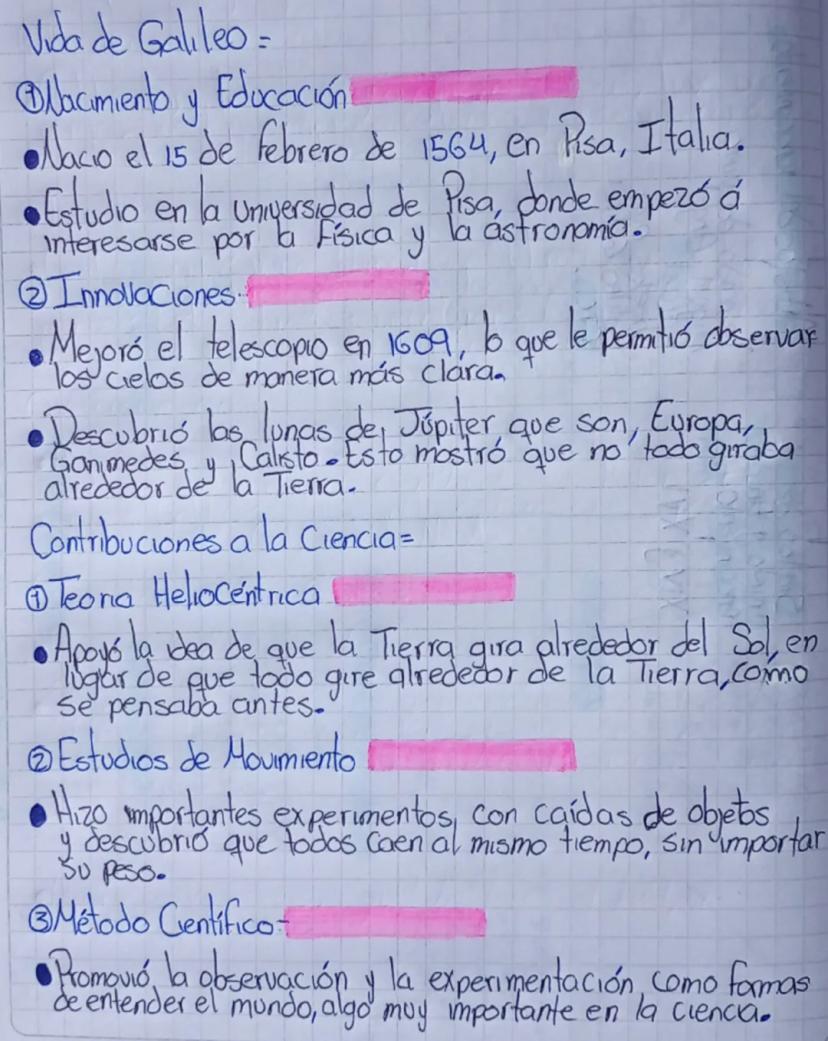 Vida de Galileo=
① Nacimiento y Educación
• Nacio el 15 de febrero de 1564, en Pisa, Italia.
• Estudio en la Universidad de Pisa, donde empezó á
interesarse por la Física y la astronomía.
② Innovaciones.
• Mejoró el telescopio en 1609, lo que le permitió observar
los cielos de manera más clara.
• Descubrió las lunas de Júpiter que son, Europa,
Ganimedes y Calisto. Esto mostró que no todo giraba
alrededor de la Tierra.
Contribuciones a la Ciencia=
① Teoria Heliocéntrica
• Apoyó la idea de que la Tierra gira alrededor del Sol, en
lugar de que todo gire alrededor de la Tierra, como
se pensaba antes.
② Estudios de Movimiento
• Hizo importantes experimentos con caídas de objetos
y descubrió que todos caen al mismo tiempo, sin importar
su peso.
③ Método Científico-
• Promovió la observación y la experimentación como formas
de entender el mundo, algo muy importante en la ciencia.